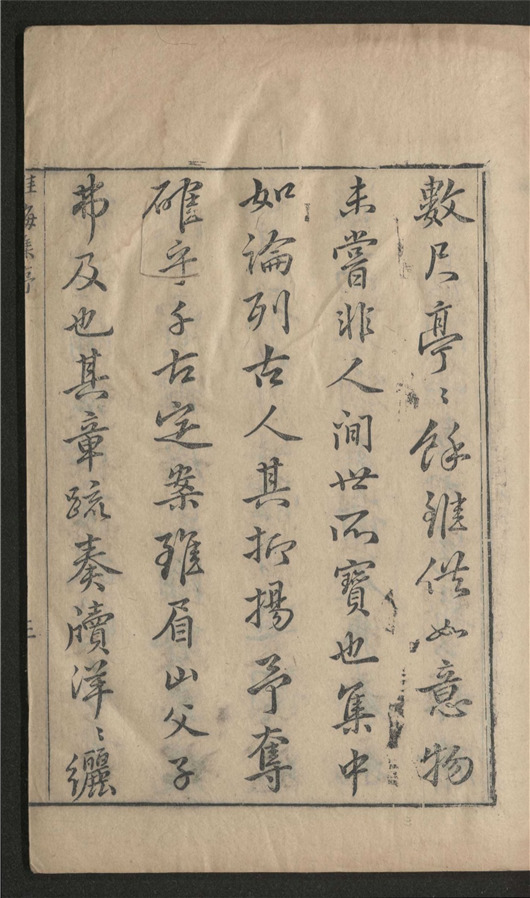 數尺亭〻餘雖供如意物
未嘗非人間世所寶也集中
如論列古人其抑揚予奪
確乎千古定案雖眉山父子
弗及也其章疏奏牘洋〻纚
海集序
三